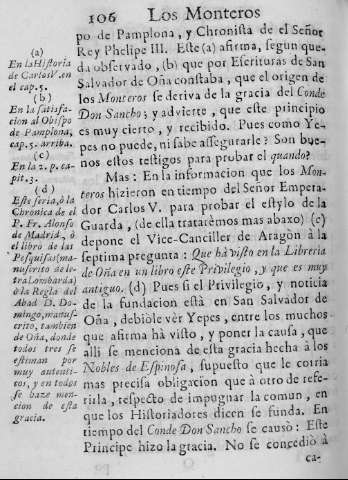 106 Los Monteros
po de Pamplona, y Chronista de el Señor
Rey Phelipe III. Este (a) afirma, segun que-
da observado, (b) que por Escrituras de San
Salvador de Oña constaba, que el origen de
los Monteros se deriva de la gracia del Conde
Don Sancho; y advierte, que este principio
es muy cierto, y recibido. Pues como Ye-
pes no puede, ni sabe assegurarle? Son bue-
nos estos testigos para probar el quando?
Mas: En la informacion que los Mon-
teros hizieron en tiempo del Señor Empera-
dor Carlos V. para probar el estylo de la
Guarda, (de ella tratarèmos mas abaxo) (c)
depone el Vice-Canciller de Aragòn à la
septima pregunta: Que hà visto en la Libreria
de Oña en un libro este Privilegio, y que es muy
antiguo. (d) Pues si el Privilegio, y noticia
de la fundacion està en San Salvador de
Oña, debiòle vèr Yepes, entre los muchos
que afirma hà visto, y poner la causa, que
alli se menciona de esta gracia hecha à los
Nobles de Espinosa, supuesto que le corria
mas precisa obligacion que à otro de refe-
rirla, respecto de impugnar la comun, en
que los Historiadores dicen se funda. En
tiempo del Conde Don Sancho se causò: Este
Principe hizo la gracia. No se concediò à
ca-
(a)
En la Historia
de Carlos V. en
el cap. 5.
(b)
En la satisfa-
cion al Obispo
de Pamplona,
cap. 5. arriba.
(c)
En la 2. p. ca-
pit. 3.
(d)
Este serìa, ò la
Chronica de el
P. Fr. Alonso
de Madrid, ò
el libro de las
Pesquisas (ma-
nuscrito de le-
tra Lombarda)
ò la Regla del
Abad D. Do-
mingo, manus-
crito, tambien
de Oña, donde
todos tres se
estiman por
muy autenti-
cos, y en todos
se haze men-
cion de esta
gracia.